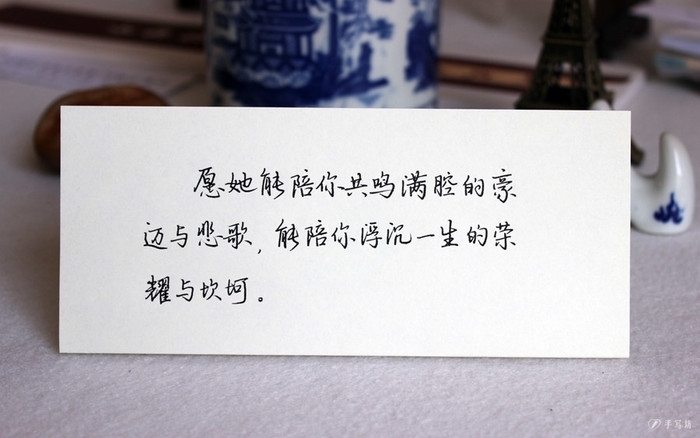 愿她能陪你共鸣满腔的豪
迈与悲歌，能陪你浮沉一生的荣
耀与坎坷。
手写族